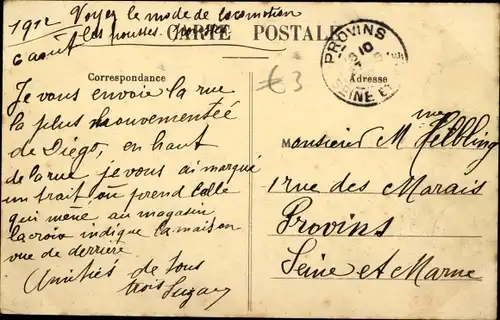 1912 Voyez le mode de locomotion
6 août les pousses pousses
CARTE POSTALE
PROVINS
10
SEINE ET
Correspondance
Adresse
€3
Je vous envoie la rue
la plus mouvementée
de Diégo, en haut
de la rue je vous ai marqué
un trait, où prend celle
qui mène au magasin
la croix indique la maison
vue de derrière
Amitiés de tous
trois Suzan
Monsieur M me Helbling
1 rue des Marais
Provins
Seine et Marne